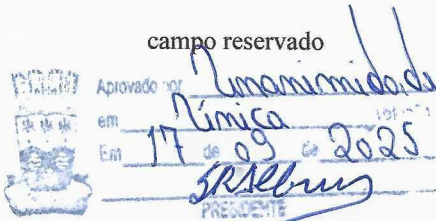 campo reservado
Aprovado por Unanimidade
em Única
Em 17 de 09 de 2025
PRESIDENTE